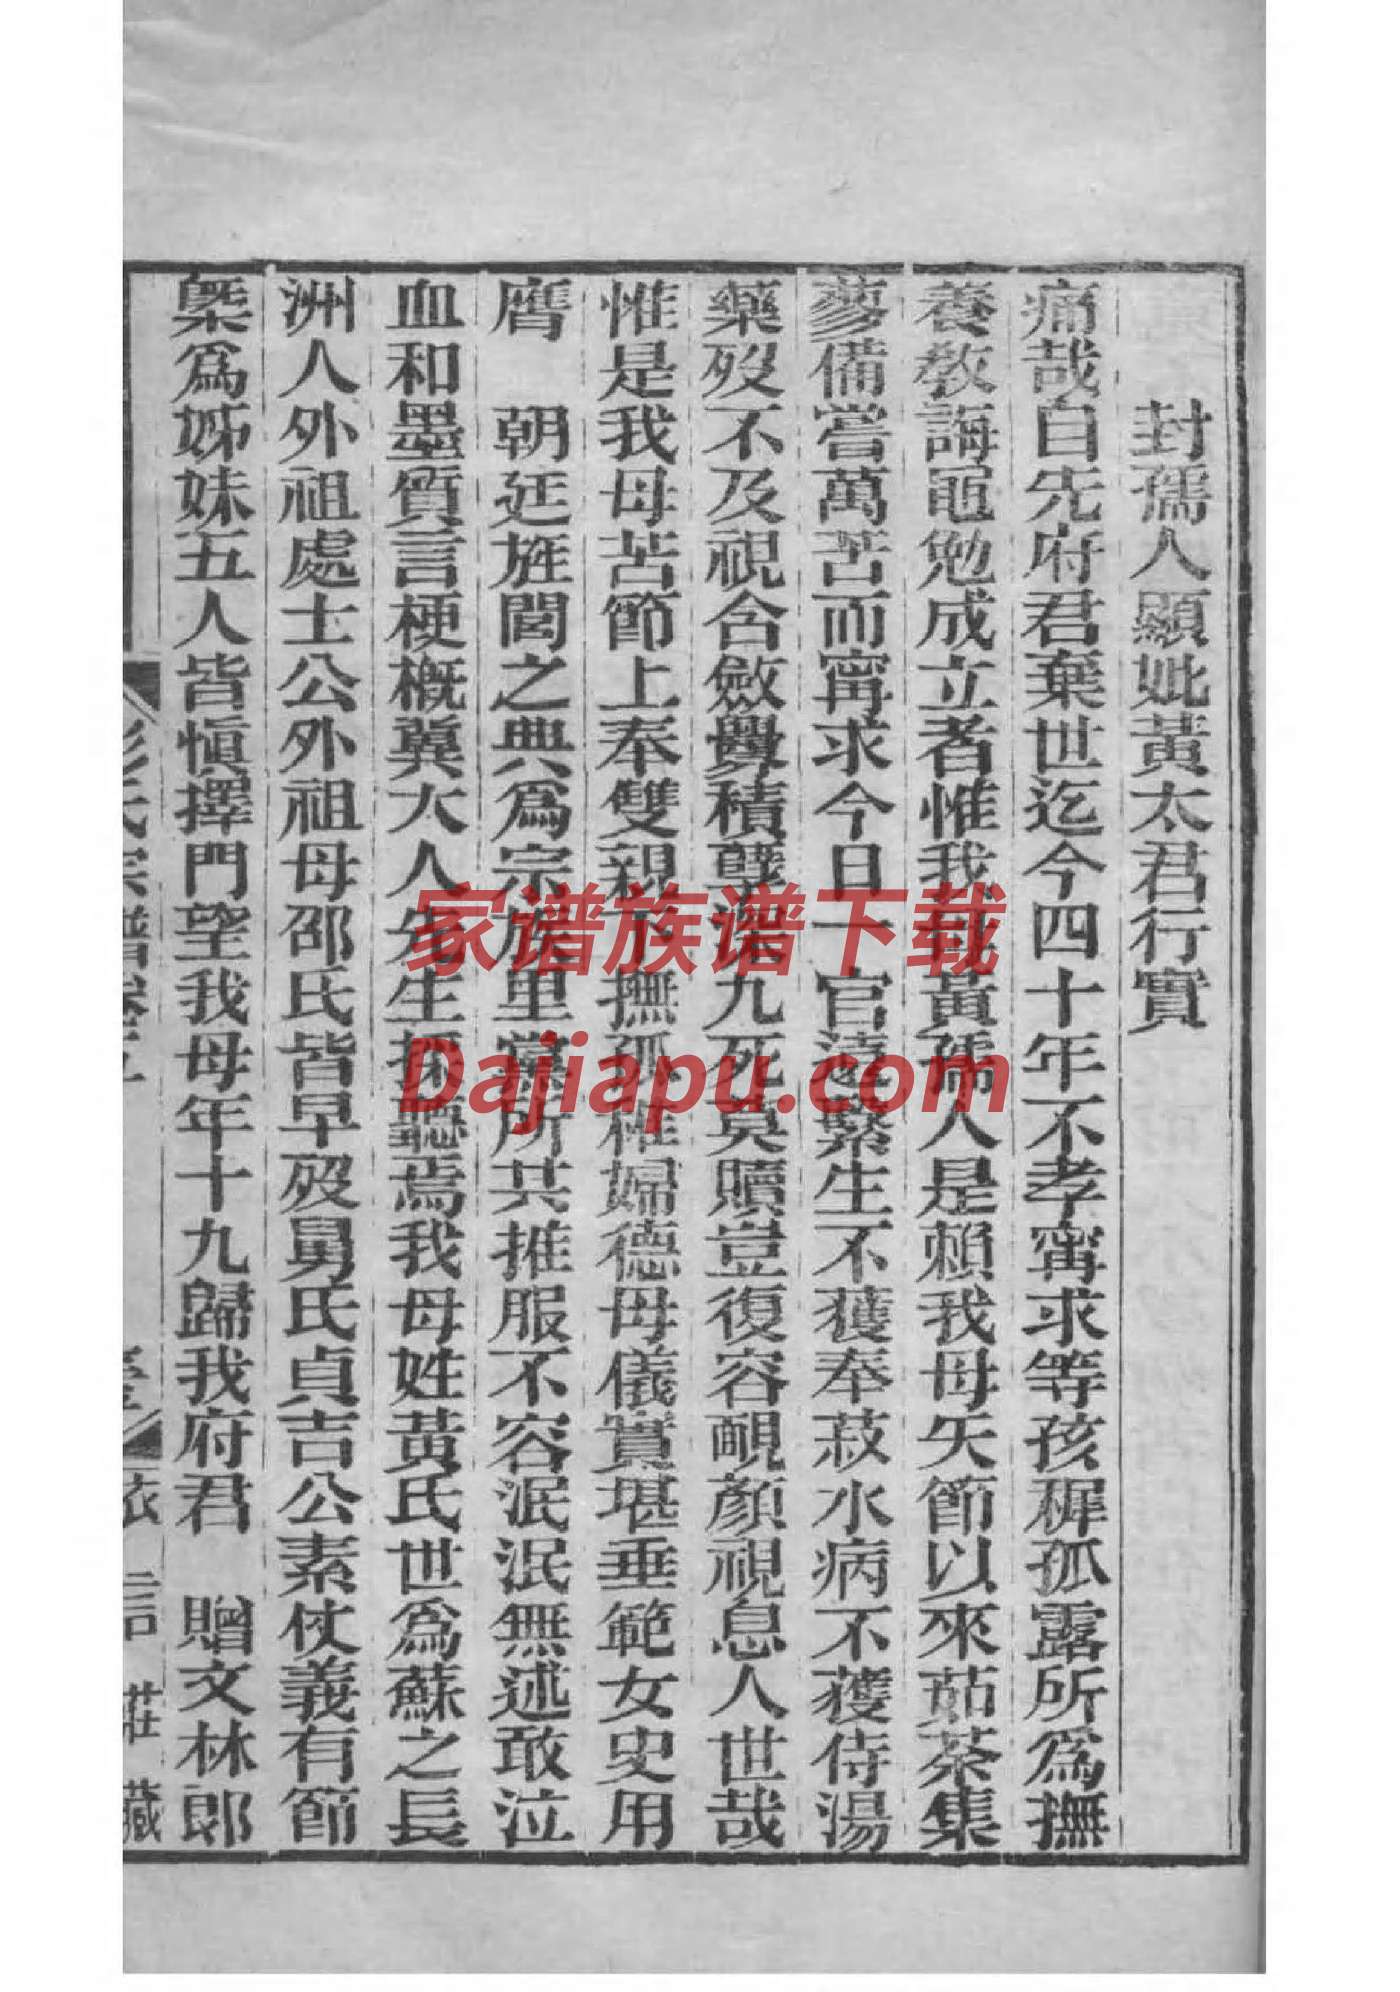 封孺人顯妣黃太君行實
痛哉自先府君棄世迄今四十年不孝甯求等孩穉孤露所為撫
養教誨黽勉成立者惟我母黃孺人是賴我母矢節以來茹荼集
蓼備嘗萬苦而甯求今日一官遠繫生不獲奉菽水病不獲侍湯
藥歿不及視含斂釁積孽深九死莫贖豈復容靦顏視息人世哉
惟是我母苦節上奉雙親下撫孤稚婦德母儀實堪垂範女史用
膺 朝廷旌閭之典為宗族里黨所共推服不容泯泯無述敢泣
血和墨質言梗概冀大人先生採聽焉我母姓黃氏世為蘇之長
洲人外祖處士公外祖母邵氏皆早歿舅氏貞吉公素仗義有節
槩為姊妹五人皆慎擇門望我母年十九歸我府君 贈文林郎
彭氏宗譜卷 依言莊藏
家谱族谱下载
Dajiapu.com